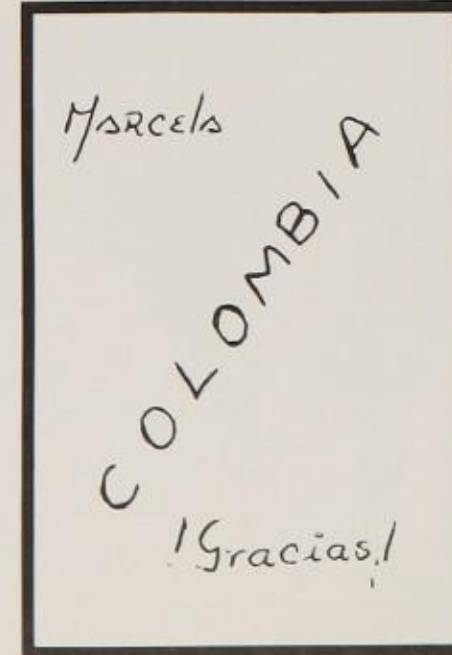 Marcela
COLOMBIA
¡Gracias!